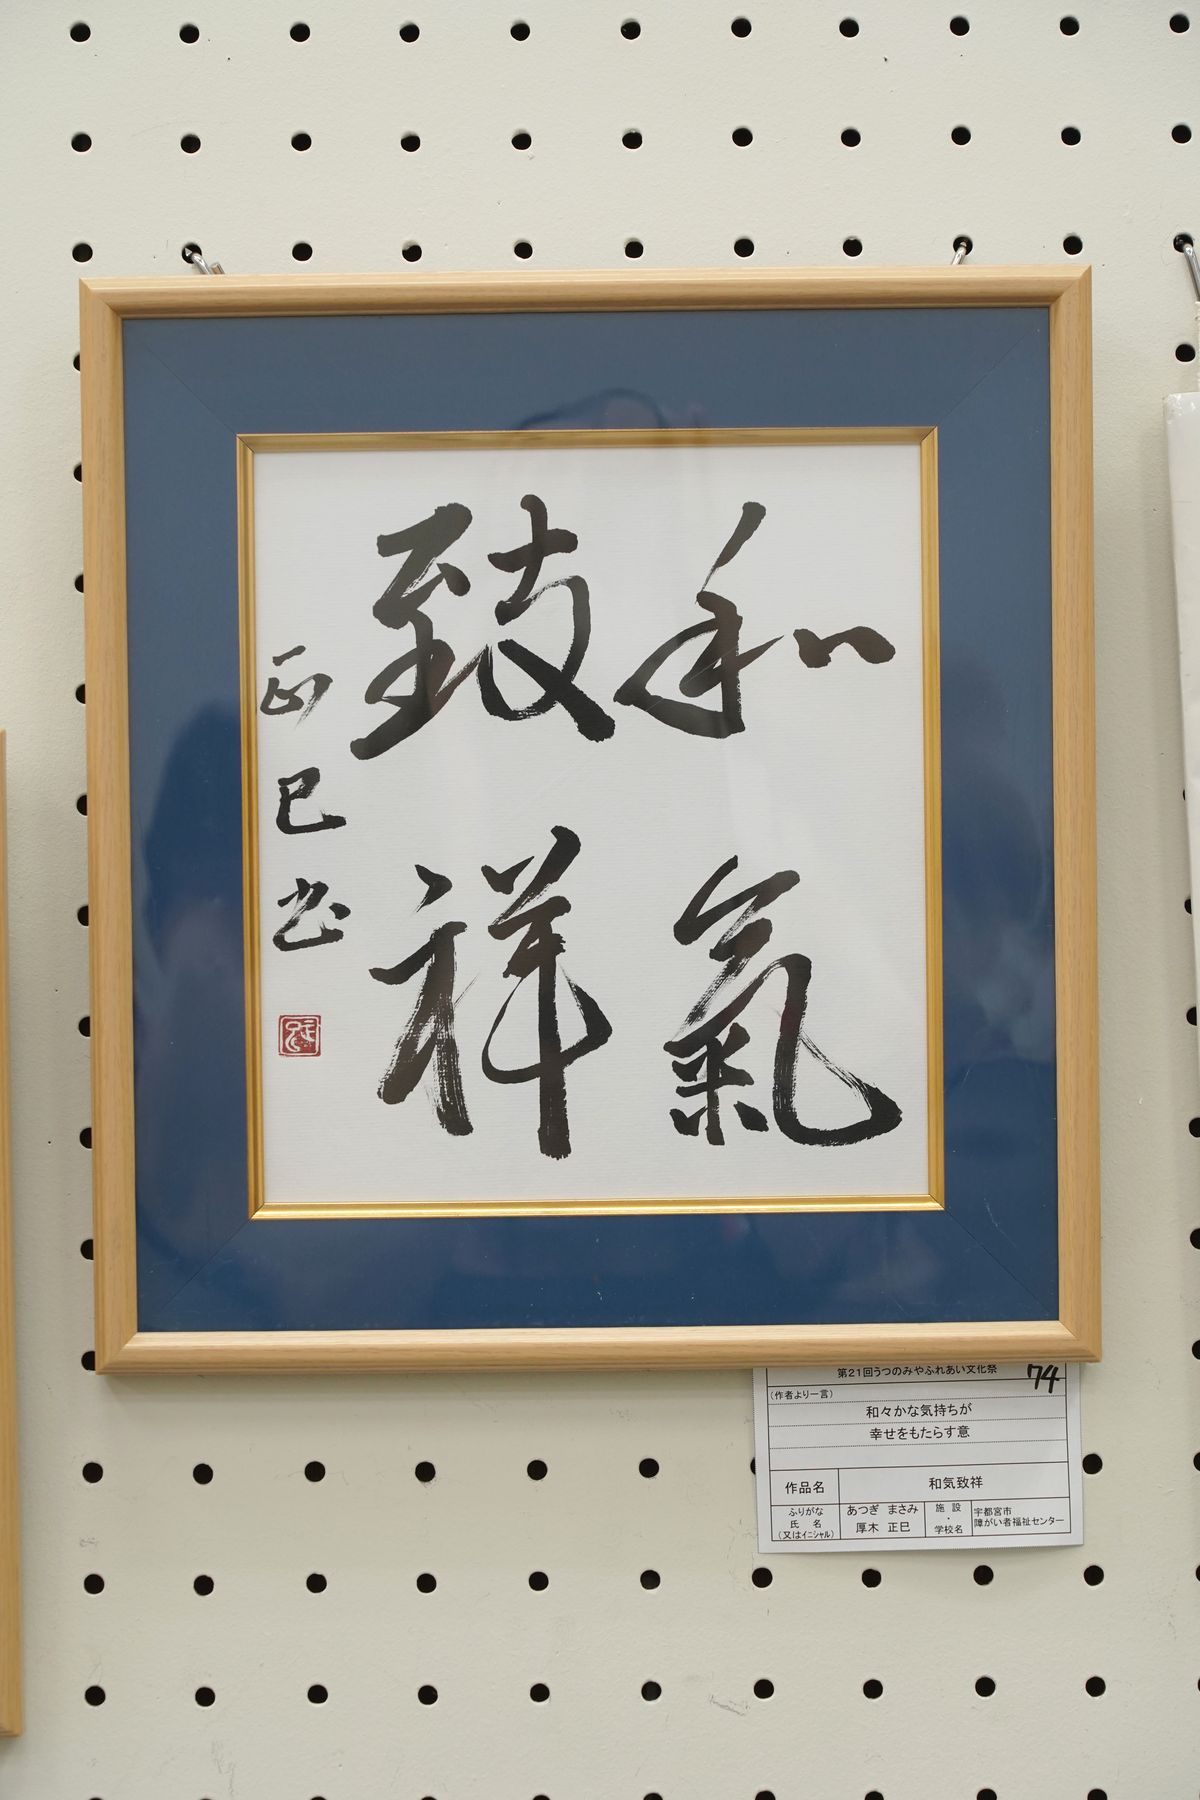 和氣
致祥
正巳書
第21回うつのみやふれあい文化祭
74
(作者より一言)
和々かな気持ちが
幸せをもたらす意
作品名
和気致祥
ふりがな
氏 名
(又はイニシャル)
あつぎ まさみ
厚木 正巳
施 設
・
学校名
宇都宮市
障がい者福祉センター